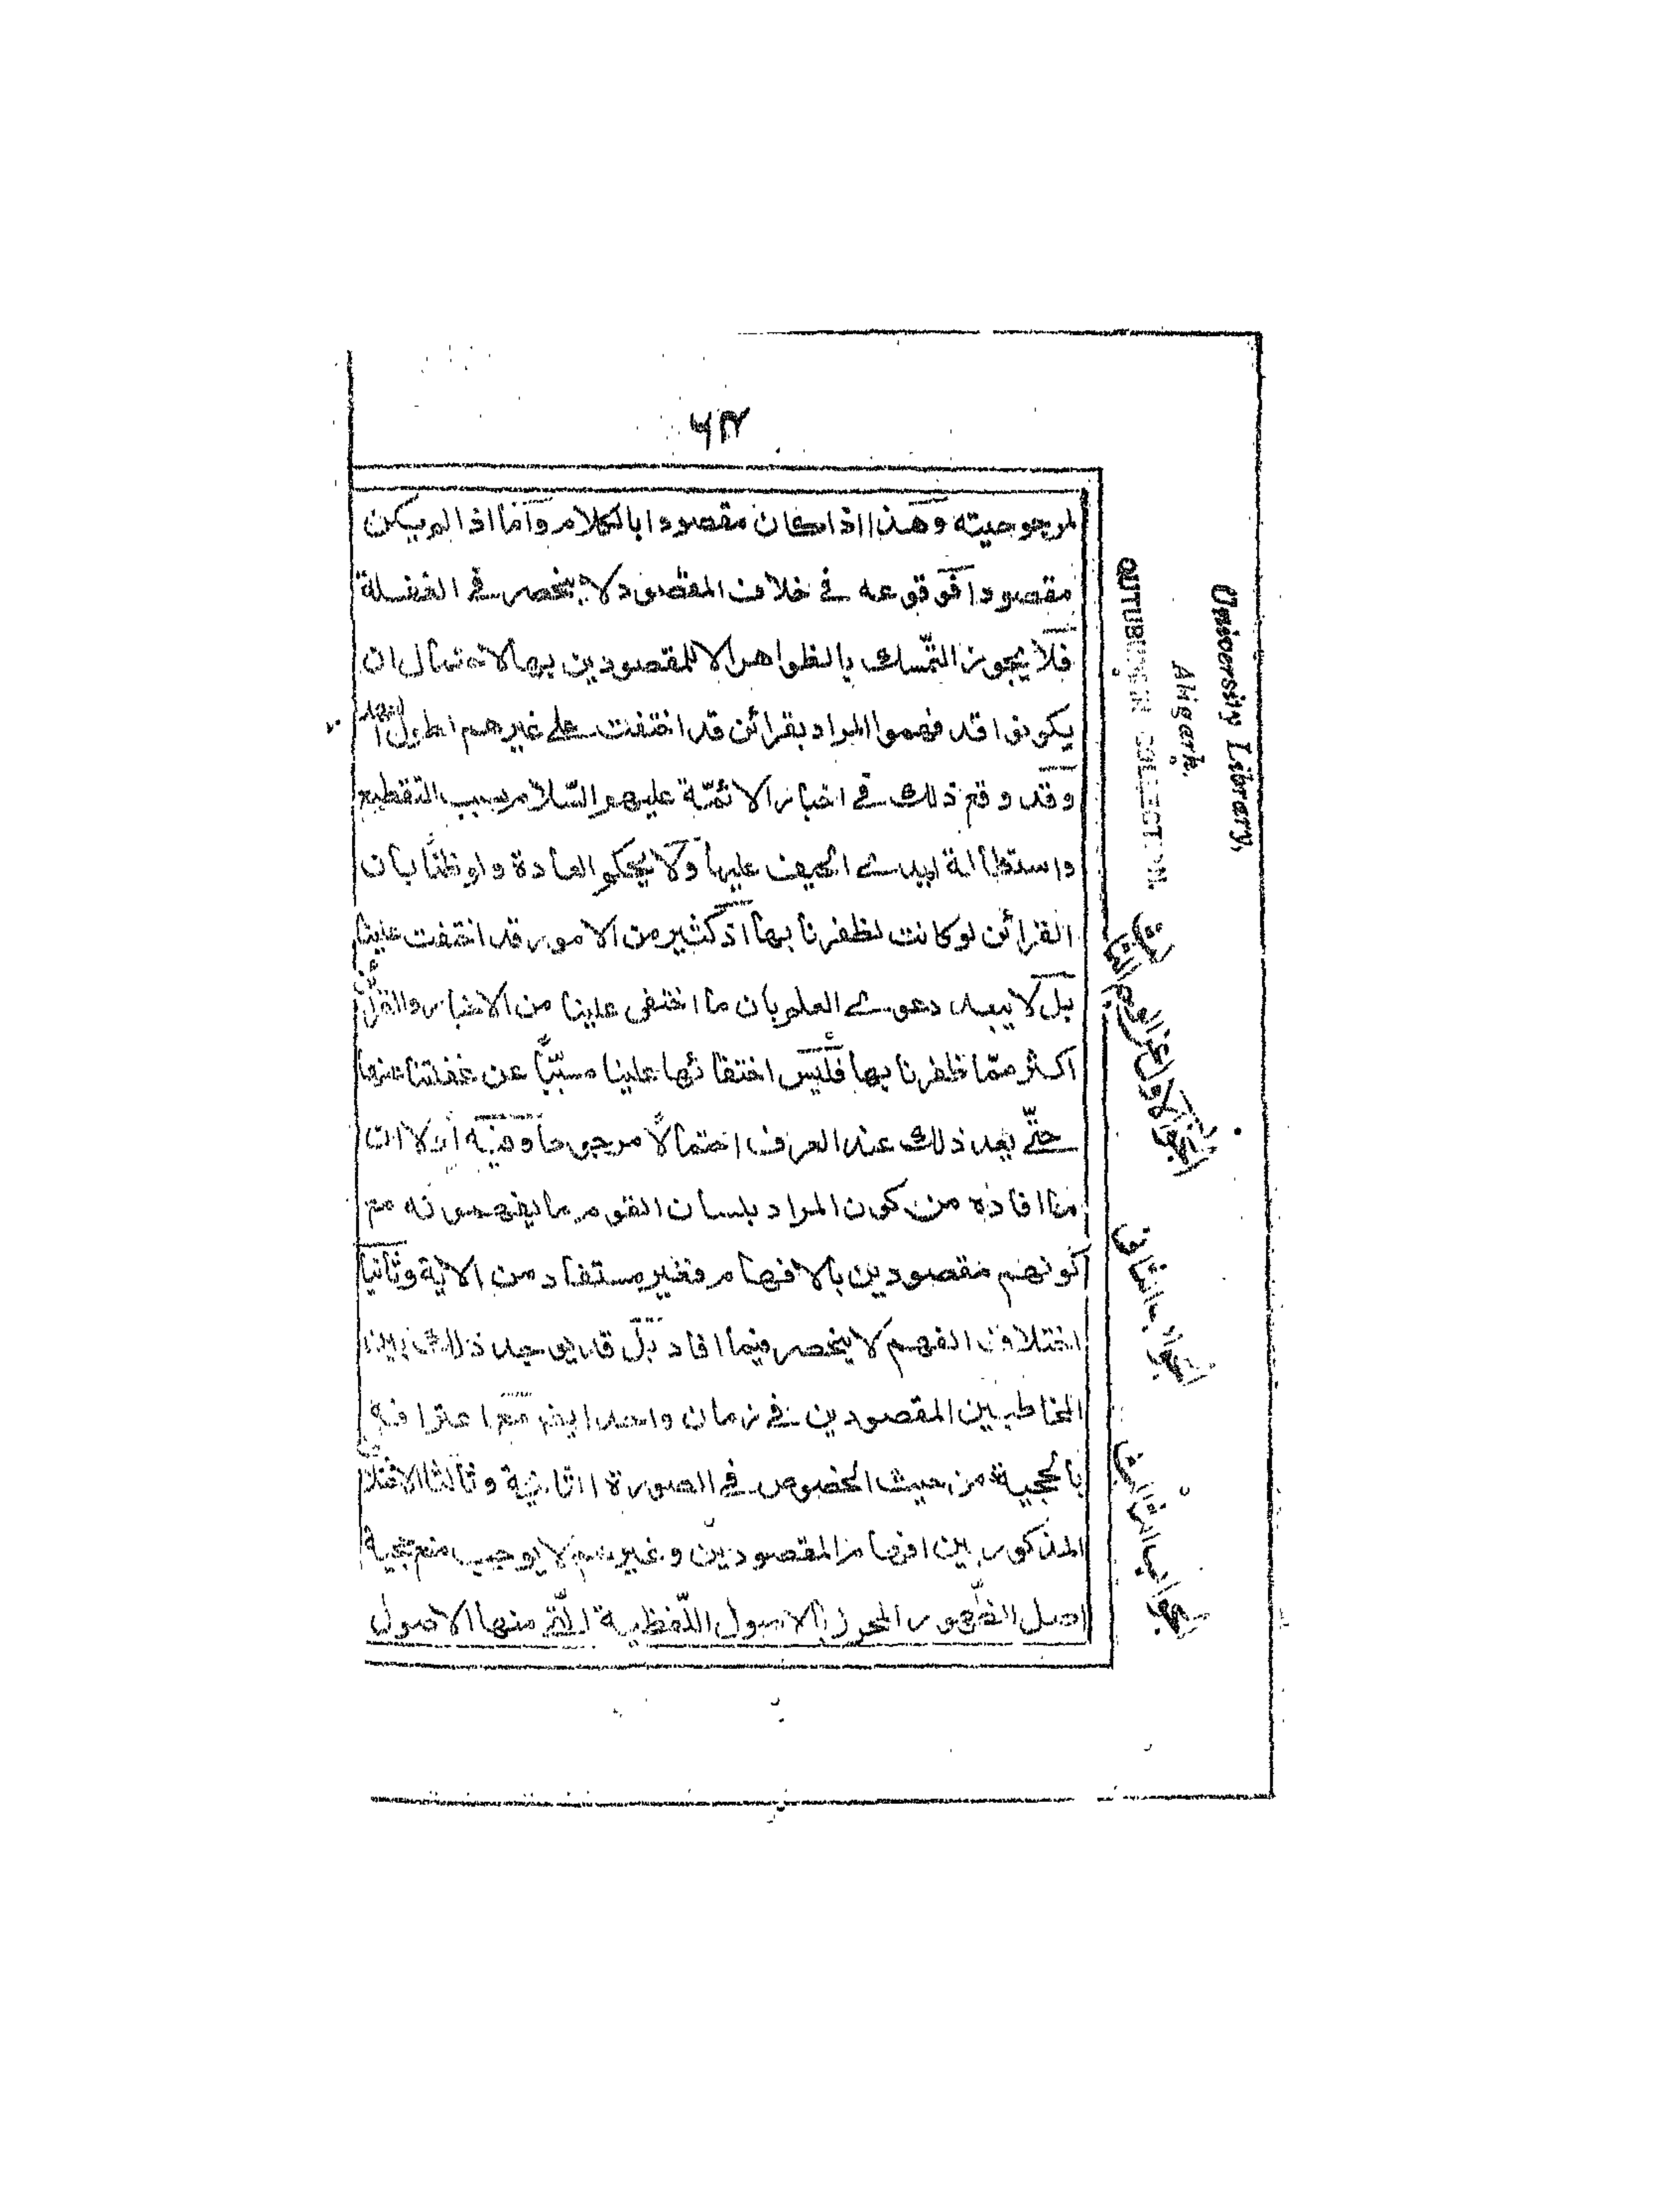 لمرجوحيته وهذا اذا كان مقصودا بالكلام واما اذا لم يكن
مقصودا فوقوعه في خلاف المقصود لا ينحصر في الغفلة
فلا يجوز التمسك بالظواهر الا للمقصودين بها لاحتمال ان
يكونوا قد فهموا المراد بقرائن قد اختفت على غيرهم لطول
وقد وقع ذلك في اخبار الائمّة عليهم السّلام بسبب التقطيع
واستطالة ايدي الحيف عليها ولا يحكم العادة ولو ظنّا بان
القرائن لو كانت لظفرنا بها اذ كثير من الامور قد اختفت علينا
بل لا يبعد دعوى العلم بان ما اختفى علينا من الاخبار والقرائن
اكثر ممّا ظفرنا بها فليس اختفائها علينا مسبّبا عن غفلتنا عنها
حتّى يعد ذلك عند العرف احتمالًا مرجوحا وفيه اولا ان
ما افاده من كون المراد بلسان القوم ما يفهمونه مع
كونهم مقصودين بالافهام فغير مستفاد من الاية وثانيا
اختلاف الفهم لا ينحصر فيما افاد بل قد يوجد ذلك بين
المخاطبين المقصودين في زمان واحد ايضا مع اعترافه
بالحجية من حيث الخصوص في الصورة الثانية وثالثا الاختلاف
المذكور بين افهام المقصودين وغيرهم لا يوجب منع حجية
اصل الظّهور المحرز بالاصول اللّفظية الّتي منها الاصول
الجواب الاول عن
الجواب الثاني
الجواب الثالث
QUTUBUDDIN COLLECTION
Aligarh.
University Library,